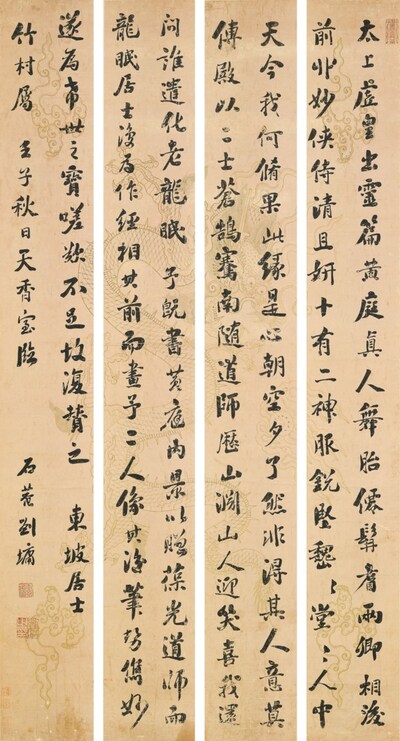 太上虛皇出靈篇黃庭真人舞胎僊髯耆兩卿相後
前丱妙俠侍清且妍十有二神服銳堅巍〻堂〻人中
天今我何脩果此緣是心朝空夕了然非得其人意莫
傳殿以二士蒼鵠騫南隨道師歷山淵山人迎笑喜我還
問誰遣化老龍眠 予既書黃庭內景以贈葆光道師而
龍眠居士復為作經相其前而畫予二人像其後筆勢雋妙
遂為希世之寶嗟歎不足故復贊之 東坡居士
竹村屬 壬子秋日天香室臨 石菴劉墉